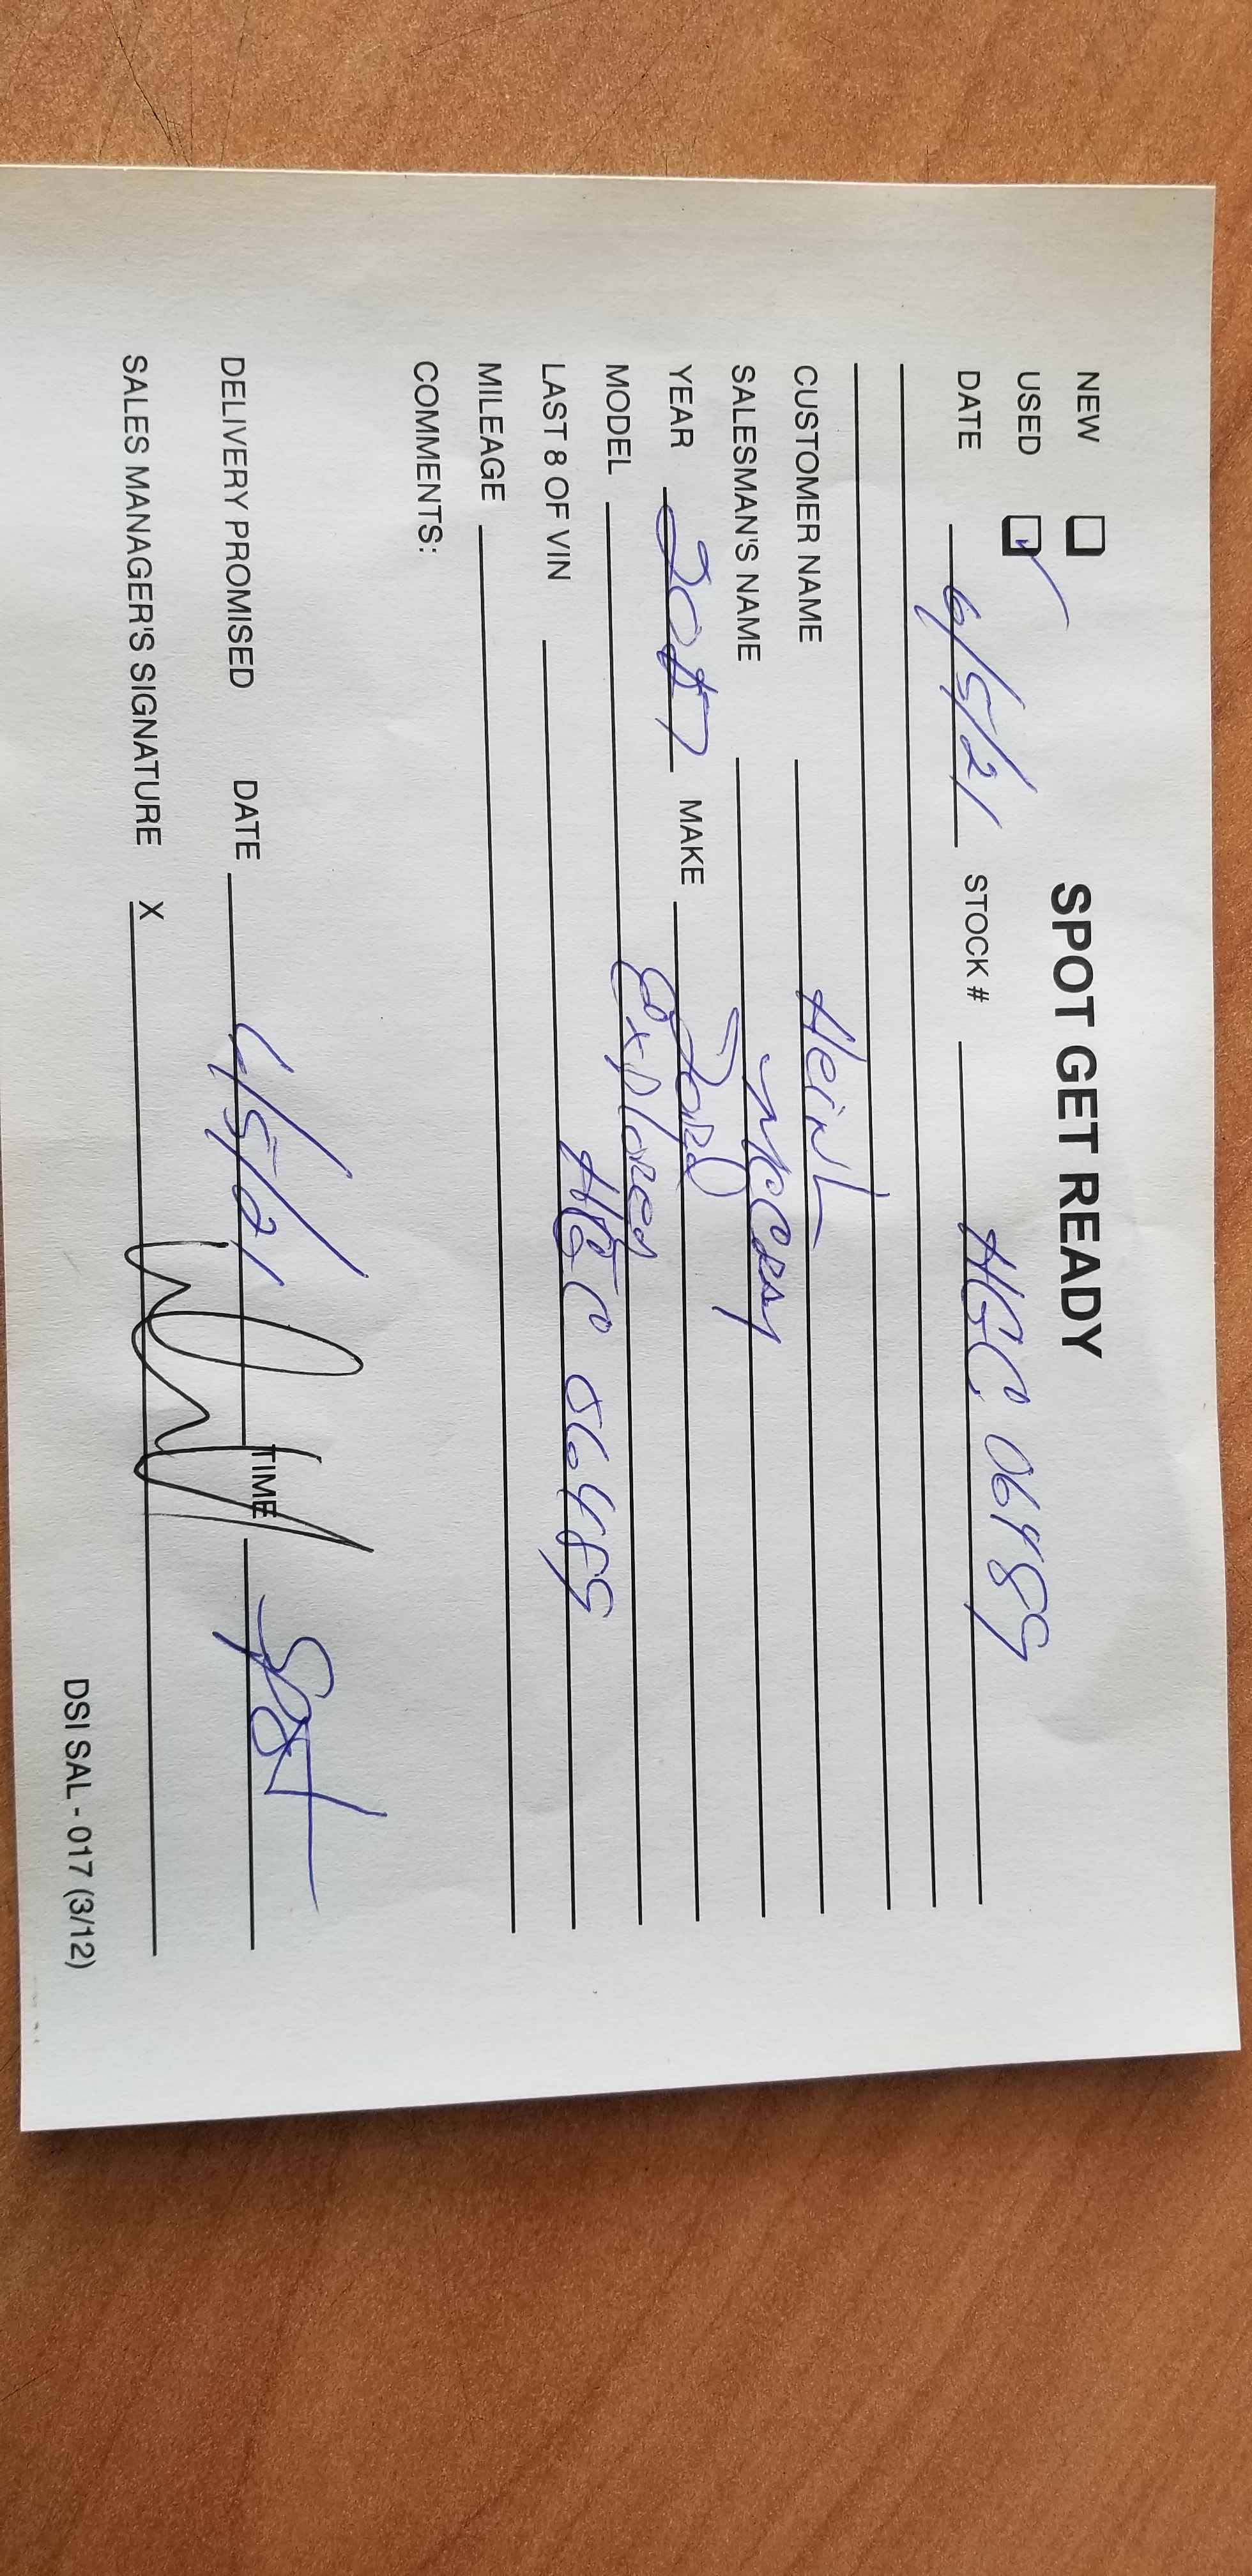 SPOT GET READY
NEW
USED ✓
DATE 6/5/21 STOCK # HGC 06489
CUSTOMER NAME Heinl
SALESMAN'S NAME
YEAR 2017 MAKE Ford
MODEL Explorer
LAST 8 OF VIN HGC 06489
MILEAGE
COMMENTS:
DELIVERY PROMISED DATE 6/5/21 TIME Spot
SALES MANAGER'S SIGNATURE X
DSI SAL - 017 (3/12)